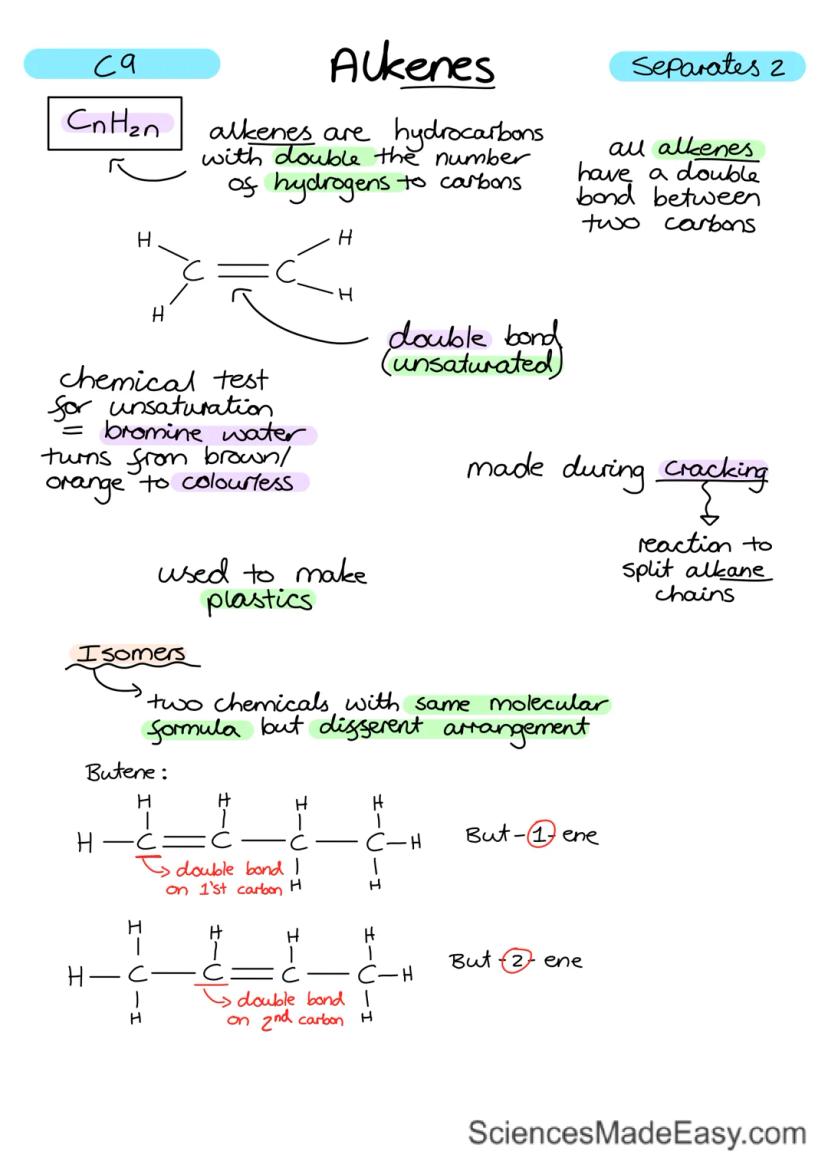 C9
Alkenes
Separates 2
CnH2n
alkenes are hydrocarbons
with double the number
of hydrogens to carbons
all alkenes
have a double
bond between
two carbons
H H
C C
H H
double bond
(unsaturated)
chemical test
for unsaturation
= bromine water
turns from brown/
orange to colourless
made during cracking
reaction to
split alkane
chains
used to make
plastics
Isomers
two chemicals with same molecular
formula but different arrangement
Butene:
H H H H
H C C C C H
H H
But-1-ene
double bond
on 1'st carbon
H H H H
H C C C C H
H H
But-2-ene
double bond
on 2nd carbon
SciencesMadeEasy.com